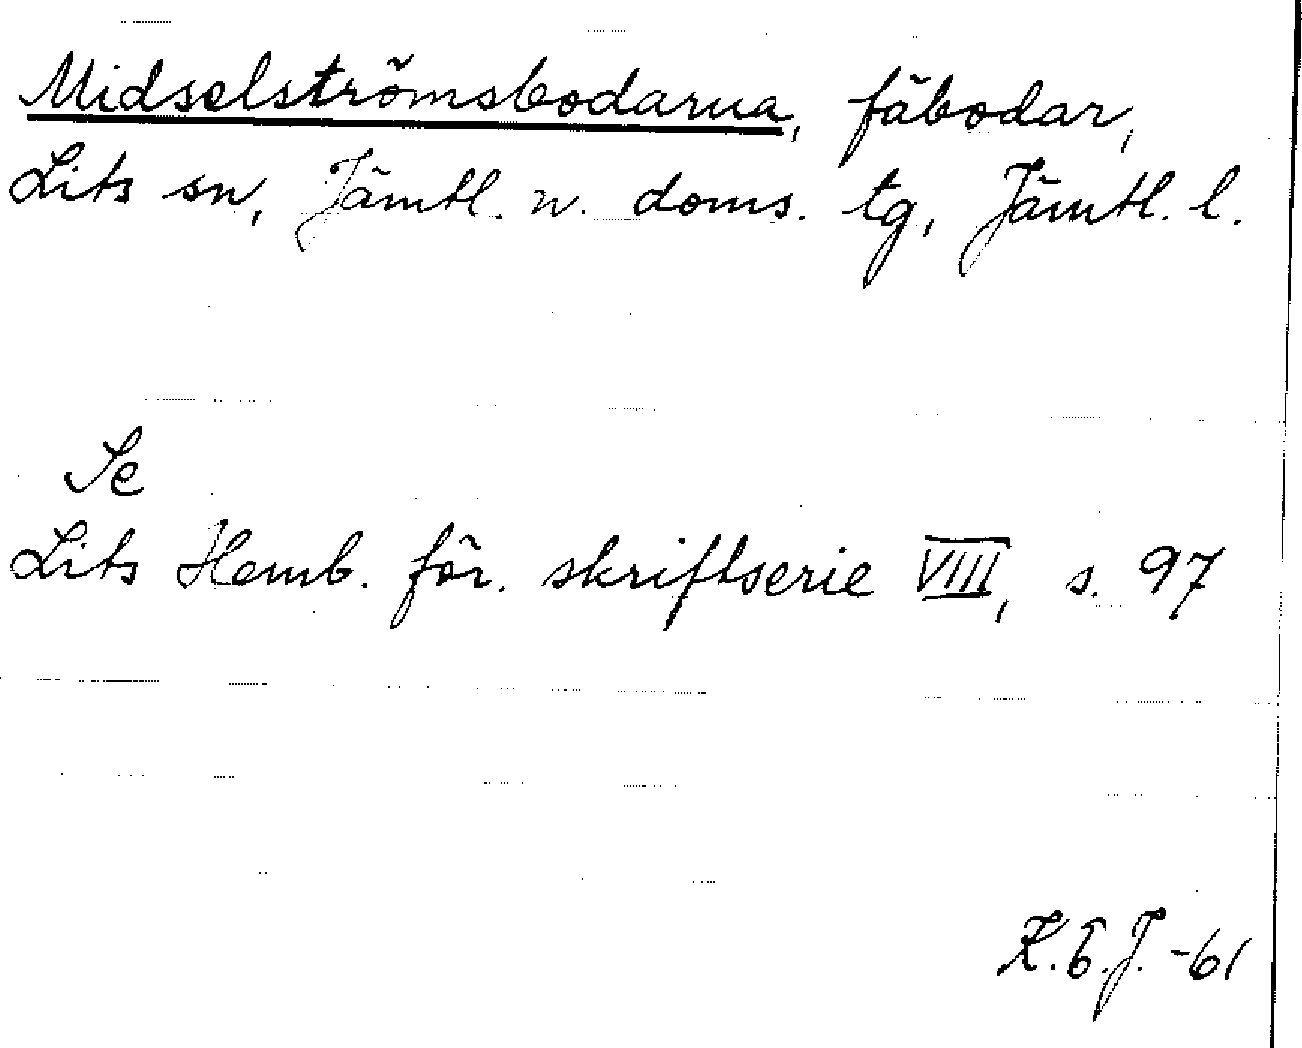 Midselströmsbodarna, fäbodar,
Lits sn, Jämtl. n. doms. tg, Jämtl. l.
Se
Lits Hemb. för. skriftserie VIII, s. 97
K.G.J. -61